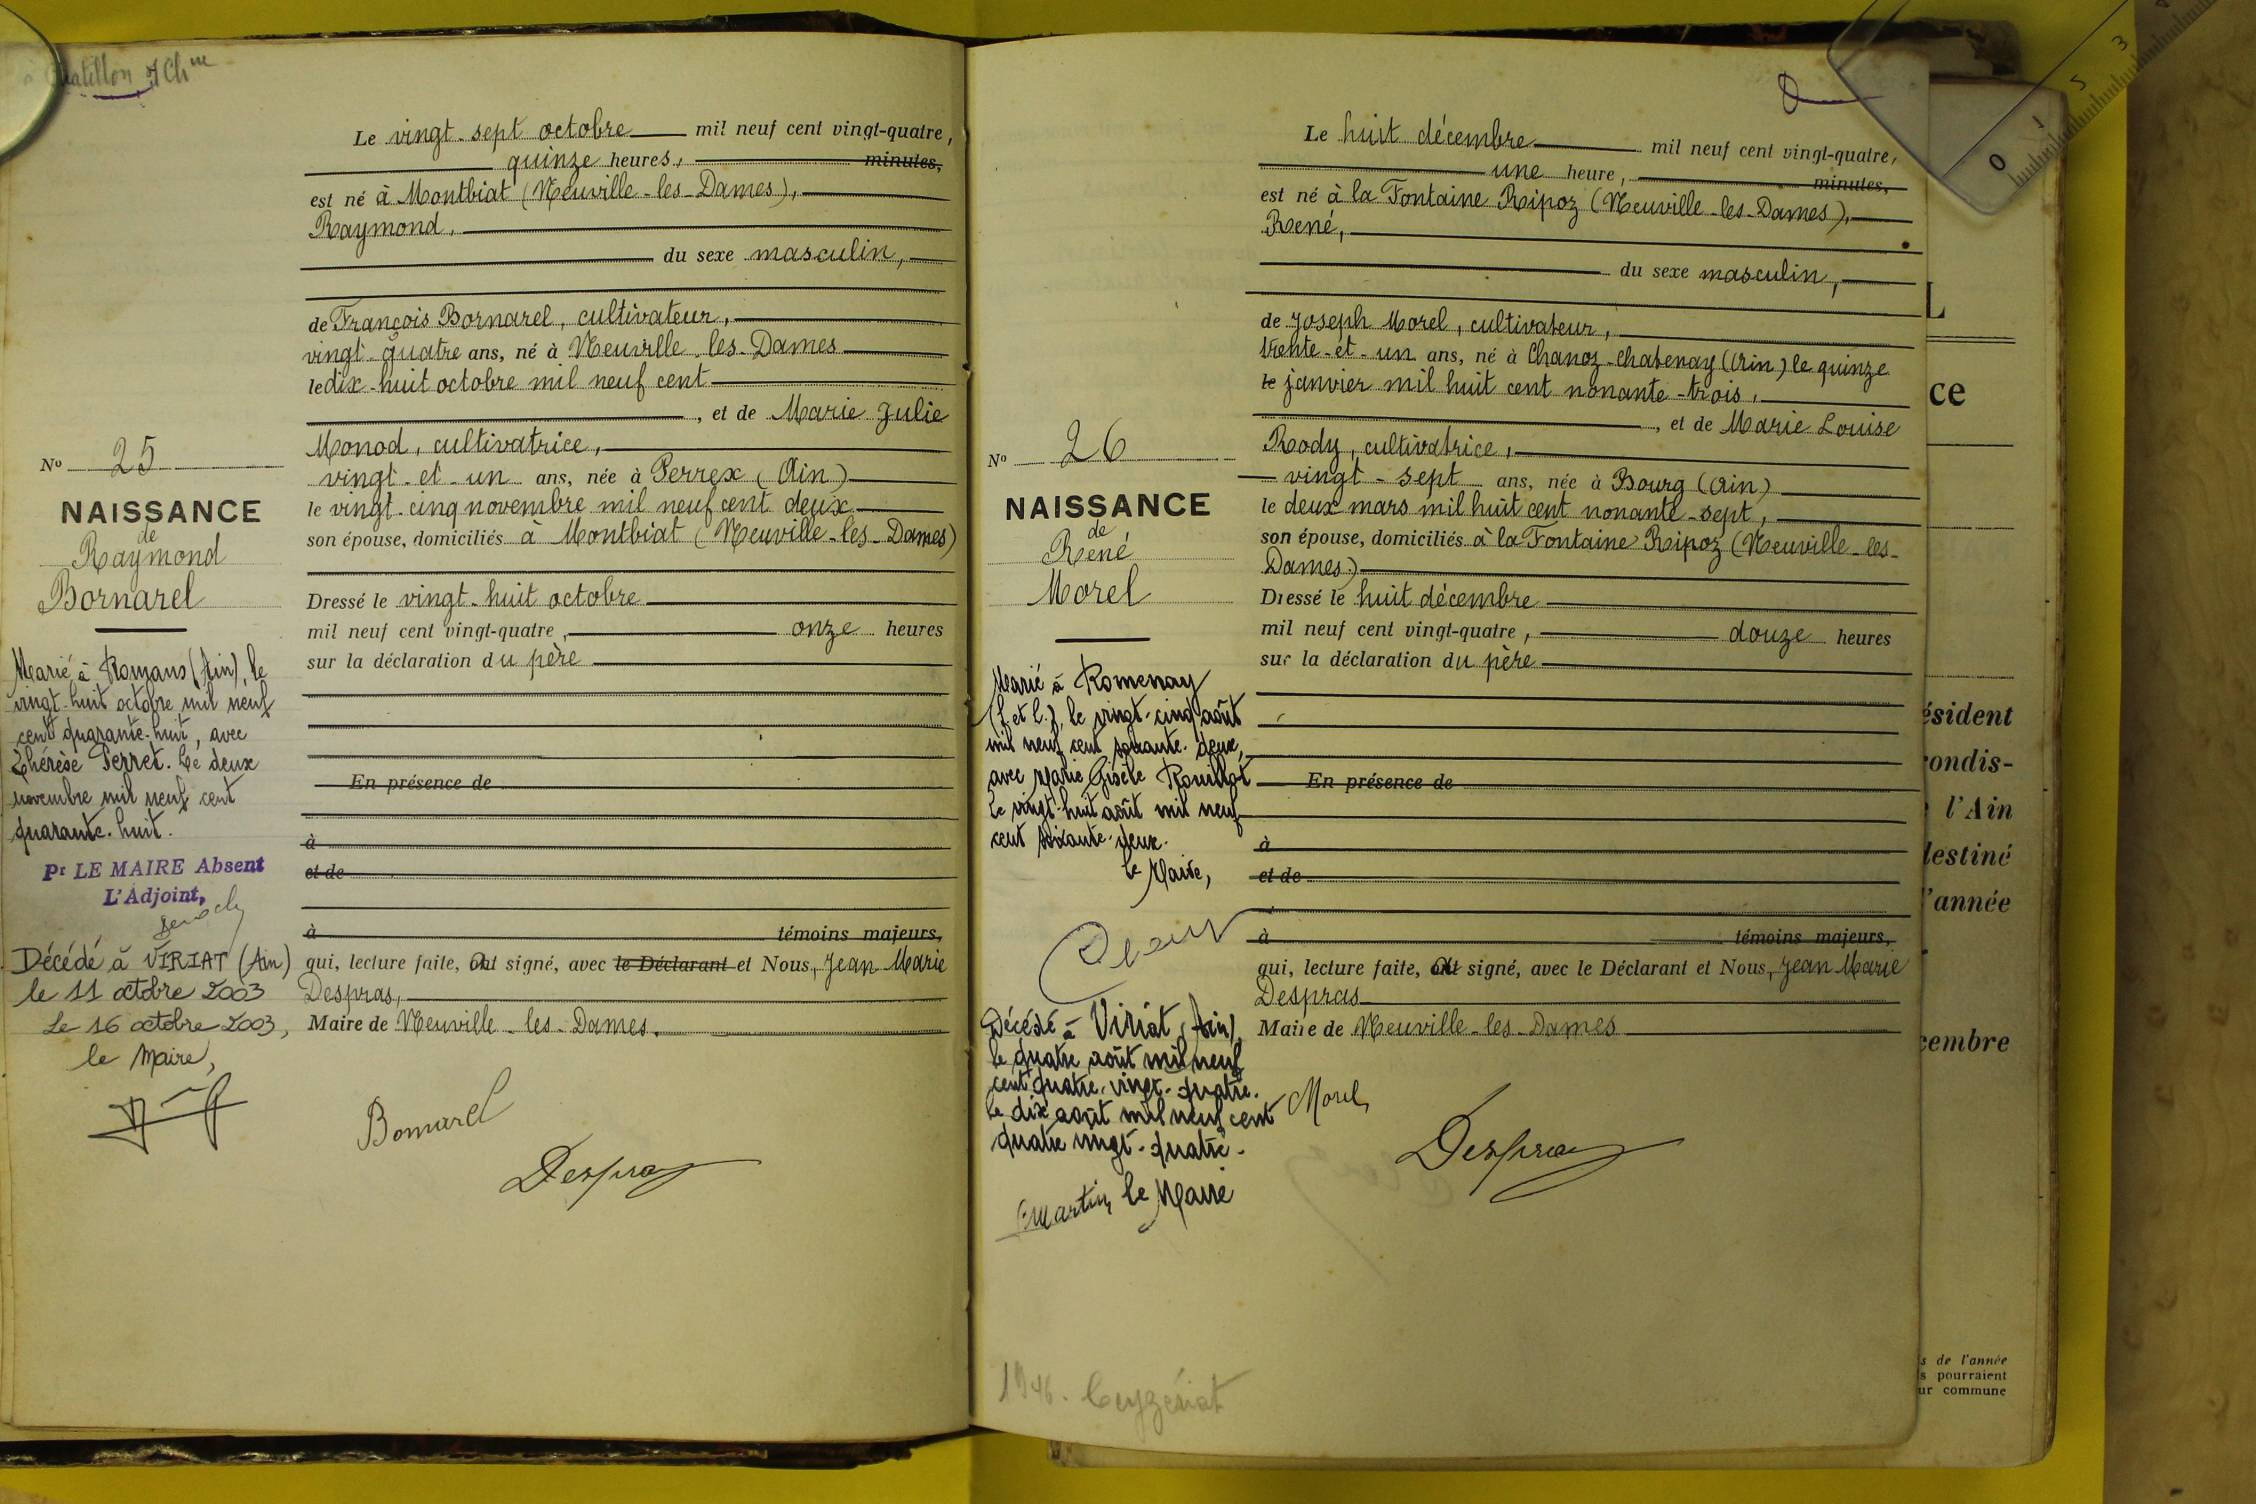 Chatillon s/ Ch^ne
Le vingt-sept octobre mil neuf cent vingt-quatre,
quinze heures, minutes,
est né à Montbiat (Neuville-les-Dames),
Raymond,
du sexe masculin,
de François Bornarel, cultivateur,
vingt-quatre ans, né à Neuville-les-Dames
le dix-huit octobre mil neuf cent
, et de Marie Julie
Monod, cultivatrice,
vingt-et-un ans, née à Perrex (Ain)
le vingt-cinq novembre mil neuf cent deux
son épouse, domiciliés à Montbiat (Neuville-les-Dames)
Dressé le vingt-huit octobre
mil neuf cent vingt-quatre, onze heures
sur la déclaration du père
En présence de
à
et de
à témoins majeurs,
qui, lecture faite, ont signé, avec le Déclarant et Nous, Jean Marie
Despras,
Maire de Neuville-les-Dames.
Bornarel
Despras
No 25
NAISSANCE
de
Raymond
Bornarel
Marié à Romans (Ain), le
vingt-huit octobre mil neuf
cent quarante-huit, avec
Thérèse Perret. Le deux
novembre mil neuf cent
quarante-huit.
Pr LE MAIRE Absent
L'Adjoint,
Décédé à VIRIAT (Ain)
le 11 octobre 2003
Le 16 octobre 2003,
le Maire,
Le huit décembre mil neuf cent vingt-quatre,
une heure, minutes,
est né à la Fontaine Ripoz (Neuville-les-Dames),
René,
du sexe masculin,
de Joseph Morel, cultivateur,
trente-et-un ans, né à Chanoz-Chatenay (Ain) le quinze
le janvier mil huit cent nonante-trois,
, et de Marie Louise
Rody, cultivatrice,
vingt-sept ans, née à Bourg (Ain)
le deux mars mil huit cent nonante-sept,
son épouse, domiciliés à la Fontaine Ripoz (Neuville-les-
Dames)
Dressé le huit décembre
mil neuf cent vingt-quatre, douze heures
sur la déclaration du père
En présence de
à
et de
à témoins majeurs,
qui, lecture faite, ont signé, avec le Déclarant et Nous, Jean Marie
Despras
Maire de Neuville-les-Dames
Morel
Despras
No 26
NAISSANCE
de
René
Morel
Marié à Romenay
(S. et L.), le vingt-cinq août
mil neuf cent soixante-deux,
avec Marie Gisèle Rouillot
Le vingt-huit août mil neuf
cent soixante-deux.
Le Maire,
Décédé à Viriat (Ain)
le quatre août mil neuf
cent quatre-vingt-quatre.
Le dix août mil neuf cent
quatre vingt-quatre.
Martin, le Maire
1946. Ceyzériat
L
ce
ésident
ondis-
l'Ain
destiné
l'année
cembre
s de l'année
s pourraient
ur commune
0 1
5 3